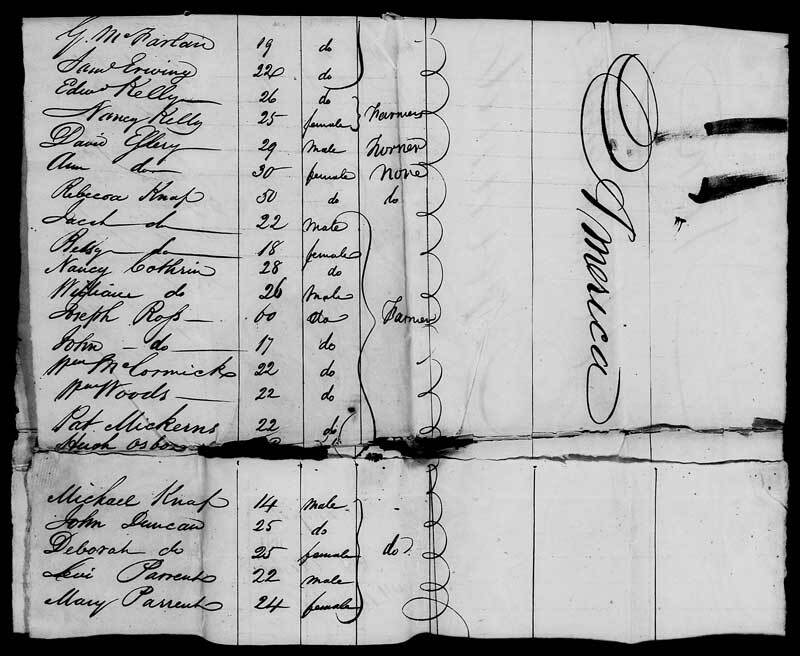 G. McFarlan 19 do
Saml Erwing 22 do
Edwd Kelly 26 do
Nancy Kelly 25 female Farmers
David Effery 29 male Horner
Ann do 30 female None
Rebecca Knaf 50 do do
Jacob do 22 Male
Betsy do 18 female
Nancy Cothrin 28 do
William do 26 Male
Joseph Ross 60 do Farmer
John do 17 do
Wm McCormick 22 do
Wm Woods 22 do
Pat Mickerns 22 do
Hugh Osbon
Michael Knaf 14 male
John Duncan 25 do
Deborah do 25 female do
Levi Parrent 22 male
Mary Parrent 24 female
America